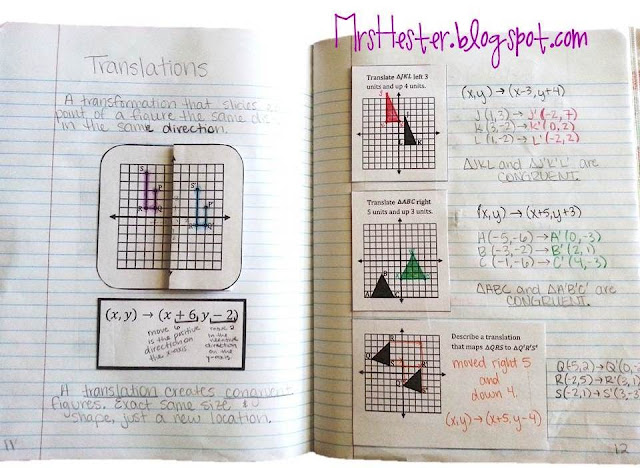 MrsHester.blogspot.com
Translations
A transformation that slides
point of a figure the same
in the same direction.
(x, y) → (x + 6, y – 2)
move 6
is the positive
direction on
the x-axis
move 2
in the
negative
direction
on the
y-axis
A translation creates congruent
figures. Exact same size &
shape, just a new location.
11
Translate ΔJKL left 3
units and up 4 units.
(x,y) → (x-3, y+4)
J(1,3) → J'(-2,7)
K(3,-2) → K'(0,2)
L(1,-2) → L'(-2,2)
ΔJKL and ΔJ'K'L' are
CONGRUENT.
Translate ΔABC right
5 units and up 3 units.
(x,y) → (x+5, y+3)
A(-5,-6) → A'(0,-3)
B(-3,-2) → B'(2,1)
C(-1,-6) → C'(4,-3)
ΔABC and ΔA'B'C' are
CONGRUENT.
Describe a translation
that maps ΔQRS to ΔQ'R'S'
moved right 5
and
down 4.
(x,y) → (x+5, y-4)
Q(-5,2) → Q'(0,
R(-2,5) → R'(3,
S(-2,1) → S'(3,-3
12